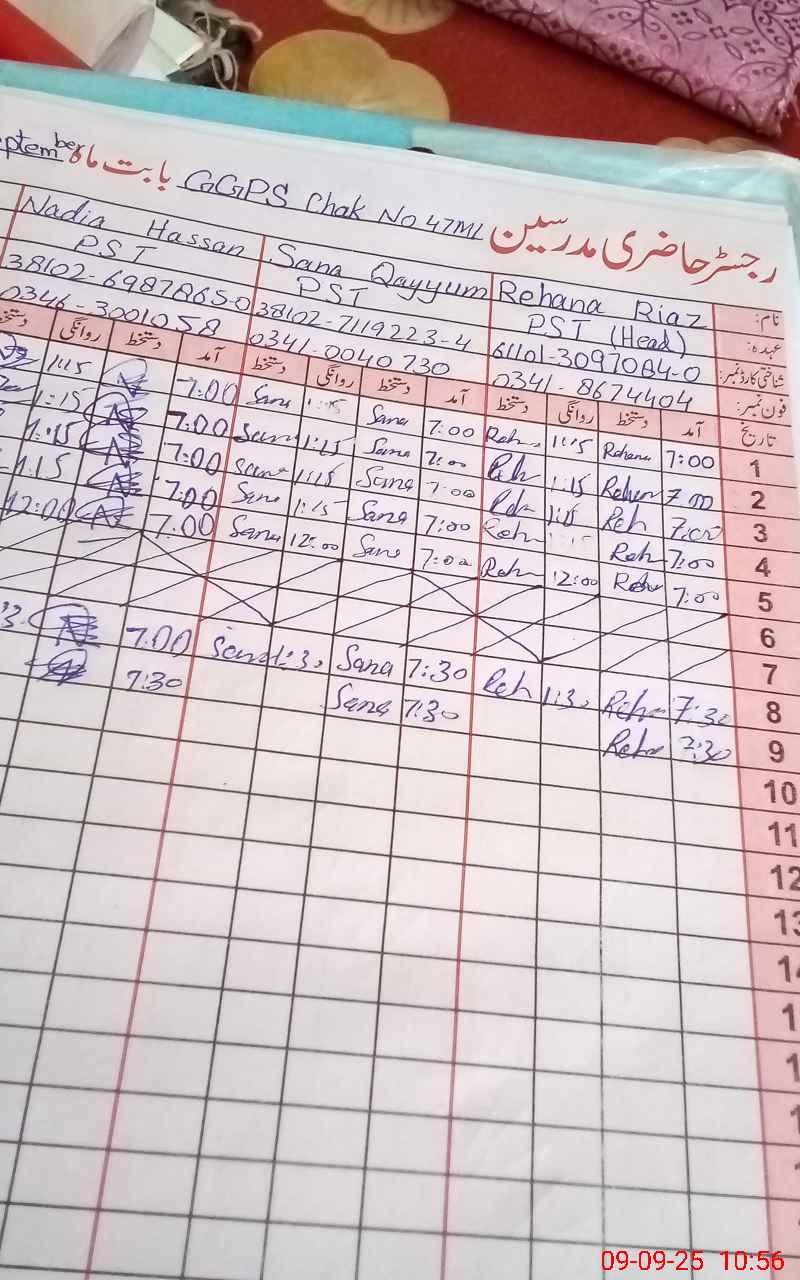 رجسٹر حاضری مدرسین GGPS Chak No 47ML بابت ماہ September
نام: Rehana Riaz Sana Qayyum Nadia Hassan
عہدہ: PST (Head) PST PST
شناختی کارڈ نمبر: 61101-3097084-0 38102-7119223-4 38102-6987865-0
فون نمبر: 0341-8674404 0341-0040730 0346-3001058
تاریخ آمد دستخط روانگی دستخط آمد دستخط روانگی دستخط آمد دستخط روانگی
1 7:00 Rehana 1:15 Reh 7:00 Sana 1:15 Sana 7:00 1:15
2 7:00 Rehan 1:15 Reh 7:00 Sana 1:15 Sana 7:00 1:15
3 7:00 Reh 1:15 Reh 7:00 Sana 1:15 Sana 7:00 1:15
4 7:00 Reh 1:15 Reh 7:00 Sana 1:15 Sana 7:00 1:15
5 7:00 Reh 12:00 Reh 7:00 Sana 12:00 Sana 7:00 12:00
6
7
8 7:30 Reh 1:30 Reh 7:30 Sana 1:30 Sana 7:00
9 7:30 Reh 7:30 Sana 7:30
10
11
12
09-09-25 10:56